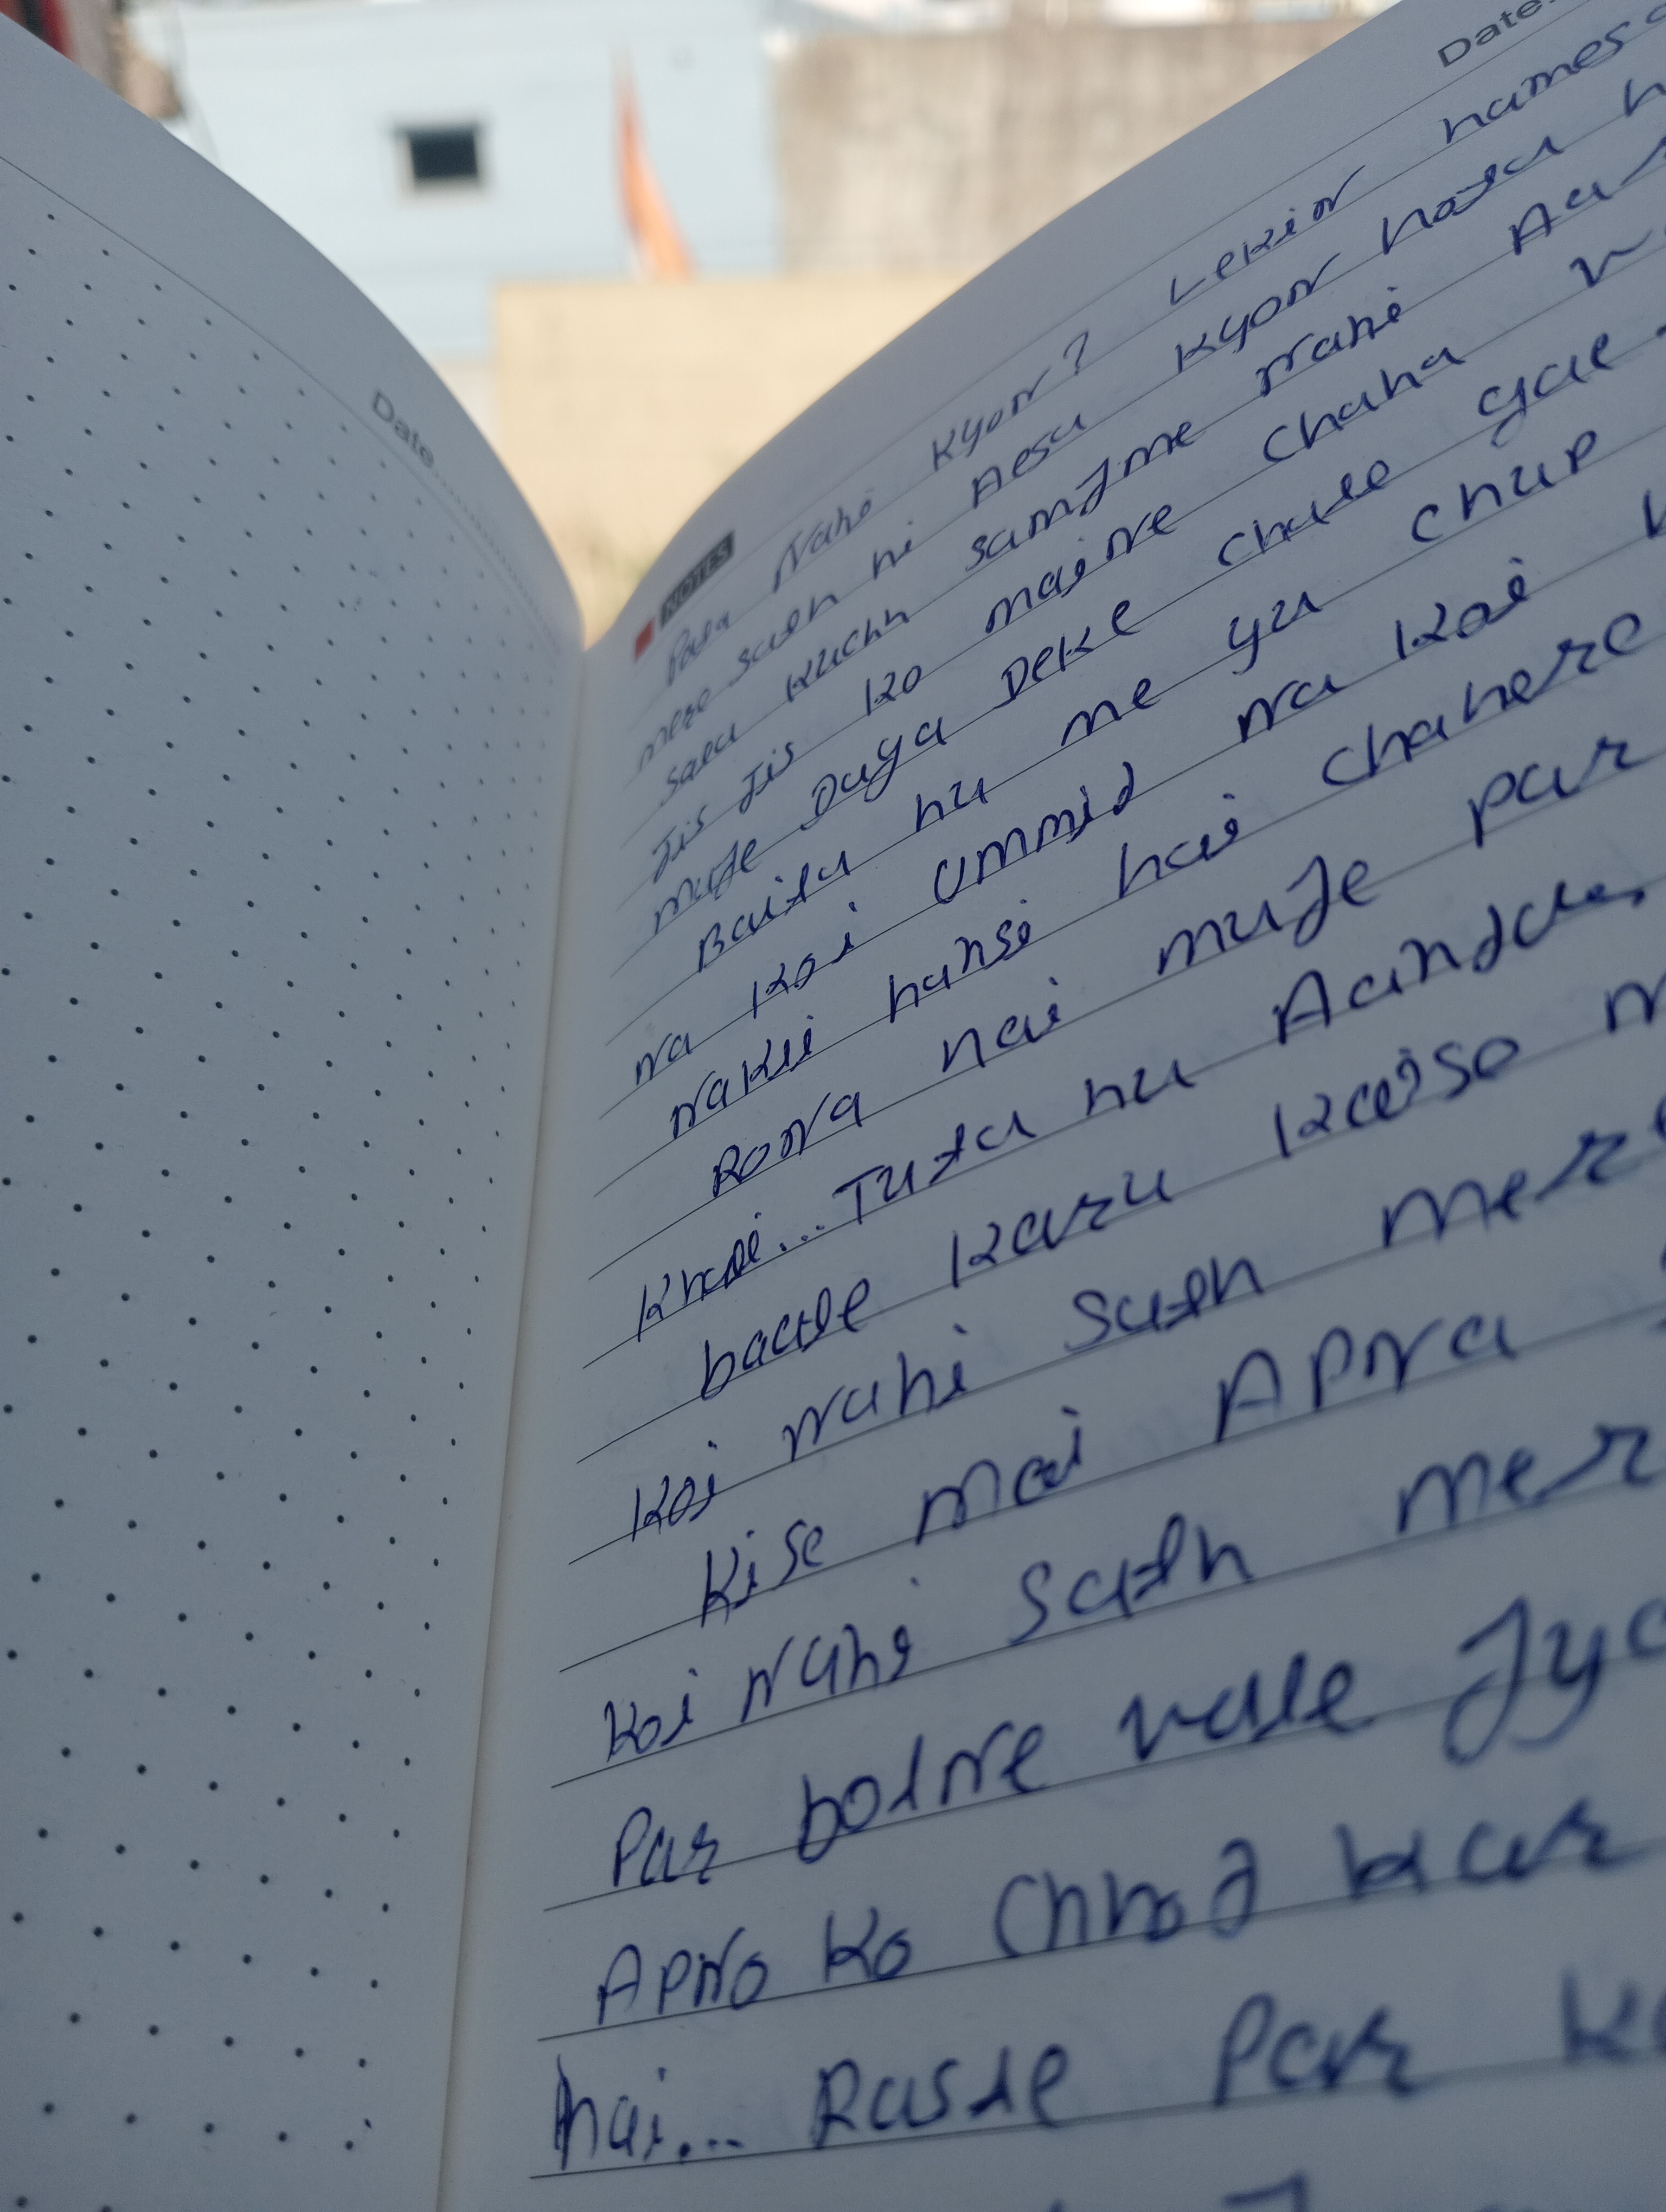 Date
Date
NOTES
Pata Nahi Kyon? Lekin hames
mere sath hi Aesa Kyon hota h
sala kuchh samjme nahi Aa
Jis Jis ko maine chaha
muje Daga Deke chale gae
Baita hu me yu chup
na koi ummid na koi
nakii hansi hai chahere
Rona hai muje par
Khai... Tuta hu Aandar
baate karu kaise m
Koi nahi sath mer
kise mai Apna
koi nahi sath mer
Par bolne vale Jya
Apno ko Chhod kar
hai... Raste Par k